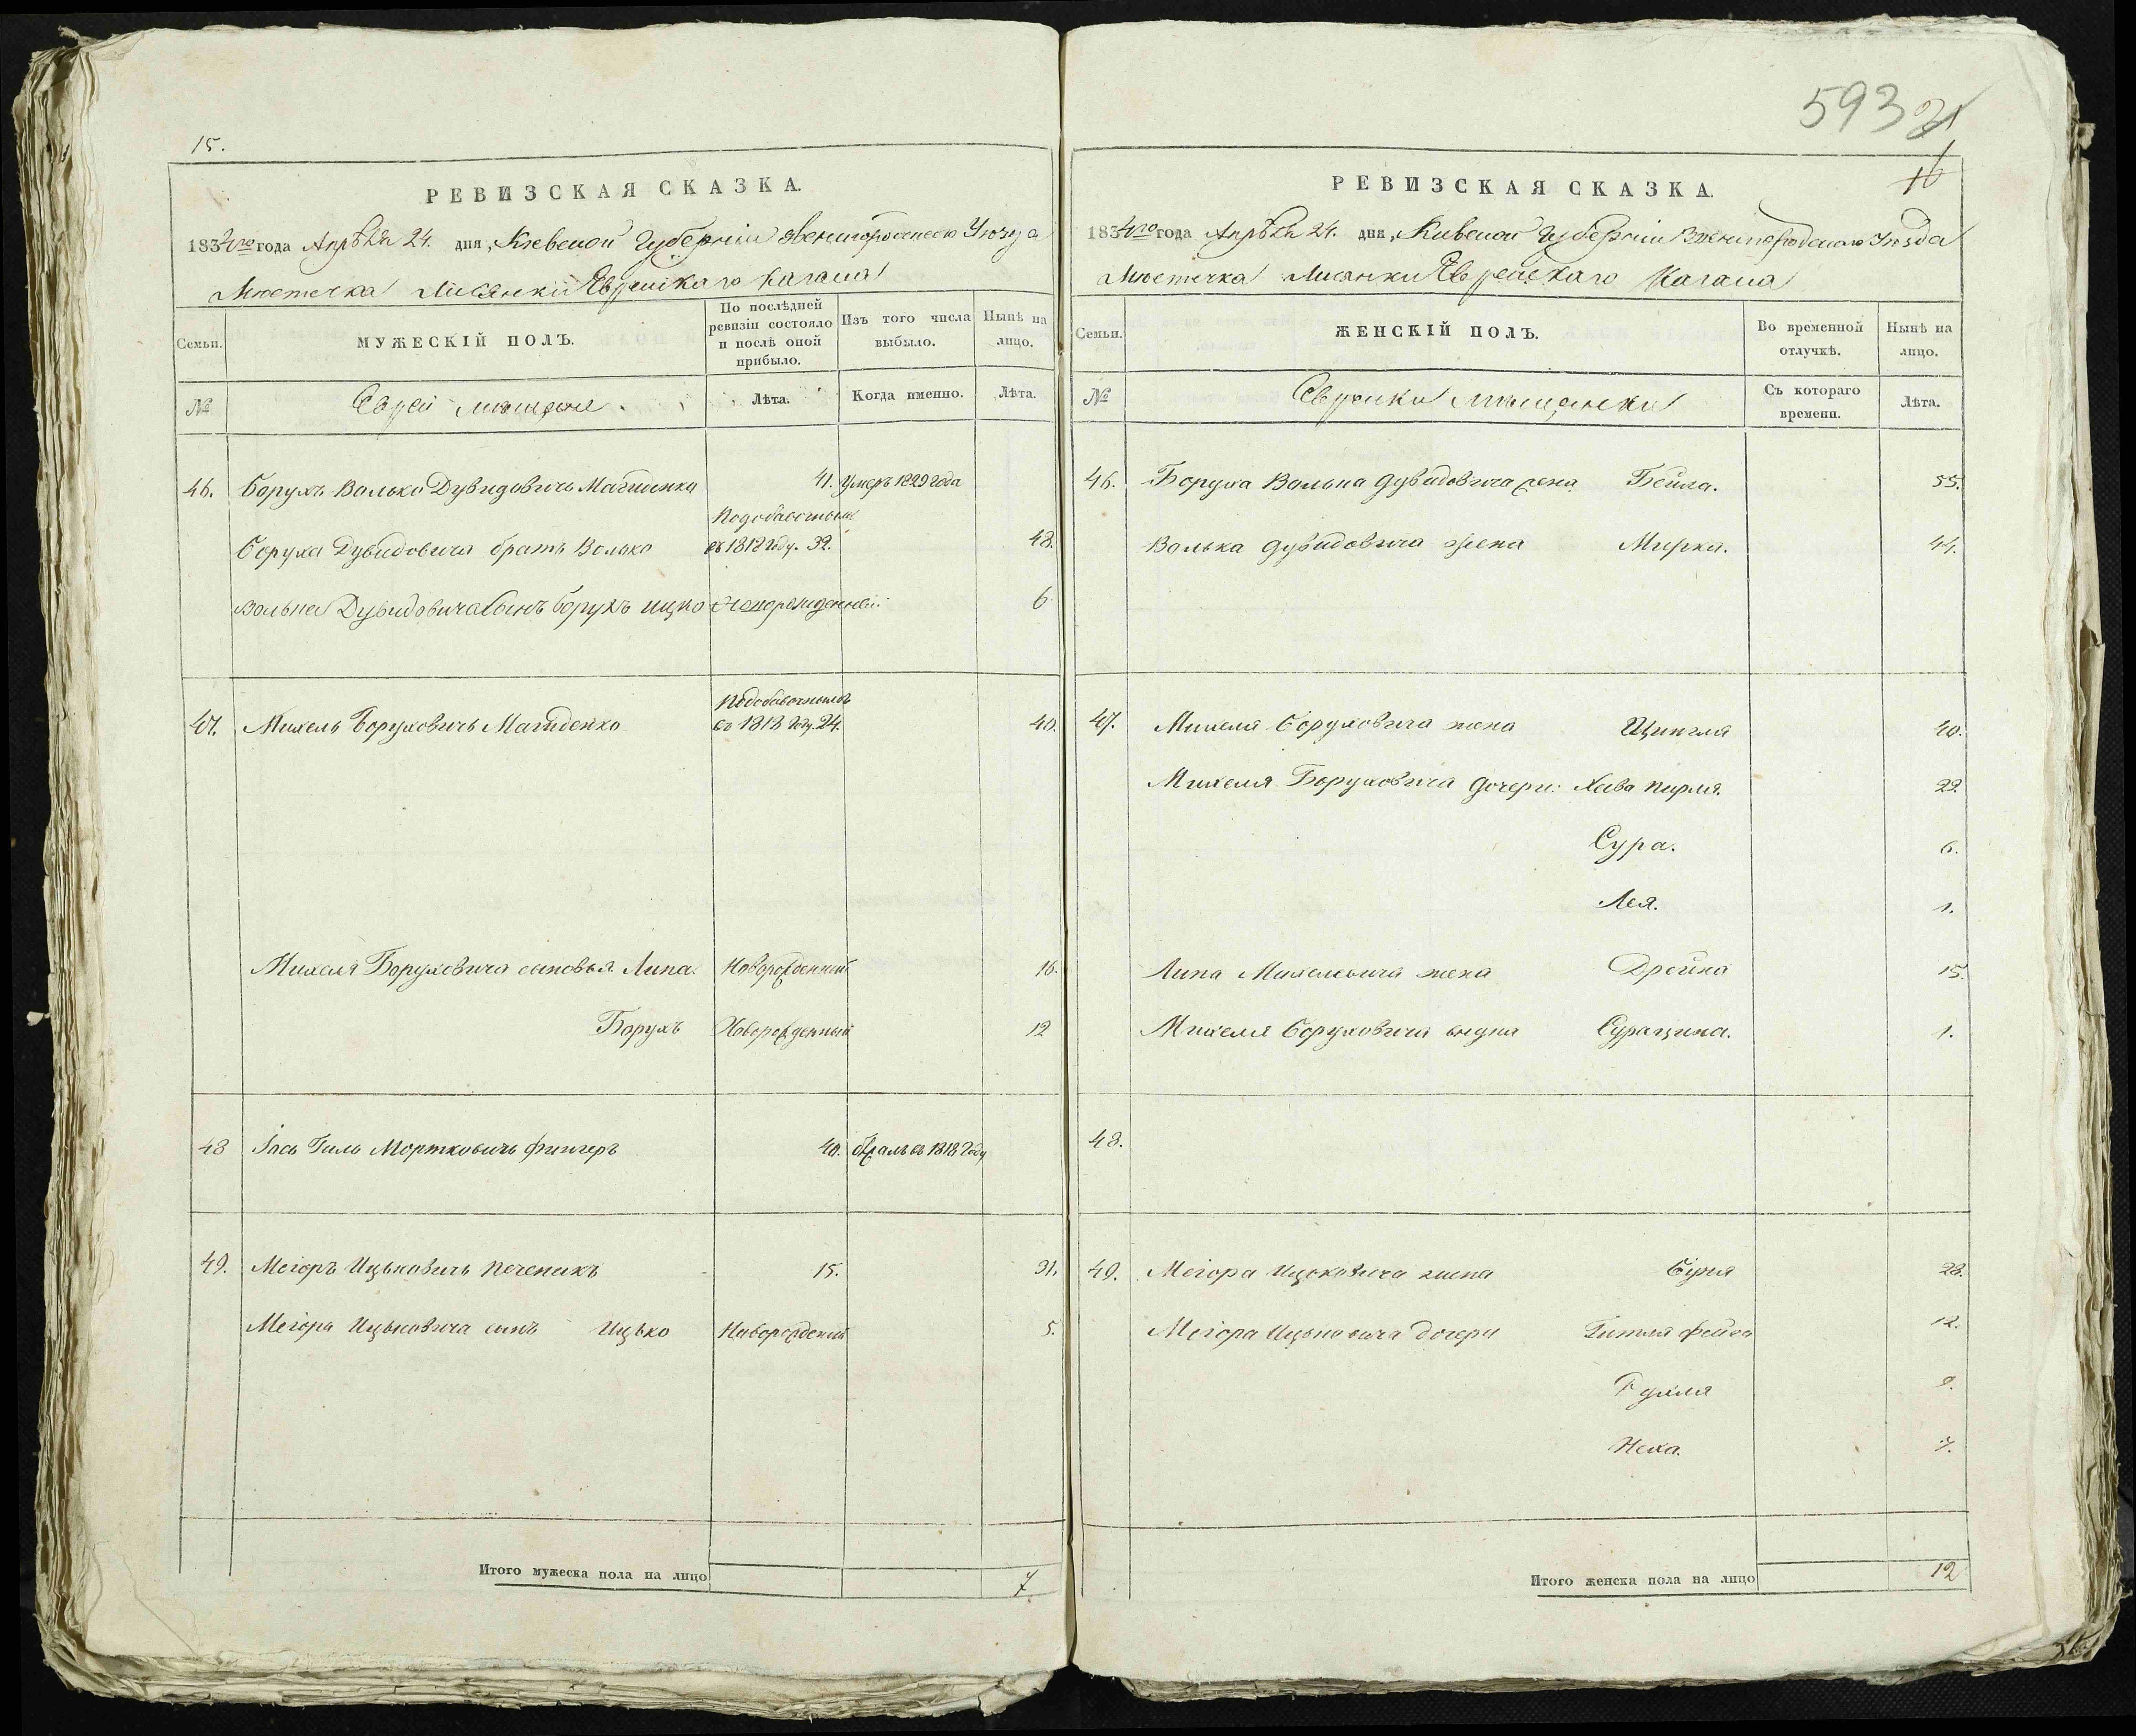 15.
РЕВИЗСКАЯ СКАЗКА.
1834го года Апрѣля 24. дня, Кіевской Губерніи Звенигородскаго Уѣзда
Мѣстечка Лисянки Еврейскаго Кагала
Семьи.
МУЖЕСКІЙ ПОЛЪ.
По послѣдней ревизіи состояло и послѣ оной прибыло.
Изъ того числа выбыло.
Нынѣ на лицо.
№
Евреи мѣщане.
Лѣта.
Когда именно.
Лѣта.
46. Борухъ Волько Дувидовичъ Магиденко 41. Умеръ 1829 года
Боруха Дувидовича братъ Волько Подобавочнымъ въ 1818 году. 32. 48.
Волька Дувидовича сынъ Борухъ Ицко Новорожденный. 6
47. Михель Боруховичъ Магиденко Подобавочнымъ въ 1818 году. 24. 40.
Михеля Боруховича сыновья Липа. Новорожденный 16.
Борухъ Новорожденный 12
48 Іось Гиль Мортковичъ Фингеръ 40. въ 1818 году
49. Меіоръ Ицьковичъ Печеникъ 15. 31.
Меіора Ицьковича сынъ Ицько Новорожденный 5.
Итого мужеска пола на лицо 7
593 21
16
РЕВИЗСКАЯ СКАЗКА.
1834го года Апрѣля 24. дня, Кіевской Губерніи Звенигородскаго Уѣзда
Мѣстечка Лисянки Еврейскаго Кагала
Семьи.
ЖЕНСКІЙ ПОЛЪ.
Во временной отлучкѣ.
Нынѣ на лицо.
№
Еврейки мѣщанки
Съ котораго времени.
Лѣта.
46. Боруха Волька Дувидовича жена Бейла. 55.
Волька Дувидовича жена Мирка. 44.
47. Михеля Боруховича жена 40.
Михеля Боруховича дочери: Хава Перля. 22
Сура. 6.
Лея. 1.
Липа Михелевича жена Дрейна 15.
Михеля Боруховича внука Сураципа. 1.
48.
49. Меіора Ицьковича жена Буня 28.
Меіора Ицьковича дочери Гитля Фейга 12.
Рухля 9.
Неха. 7.
Итого женска пола на лицо 12